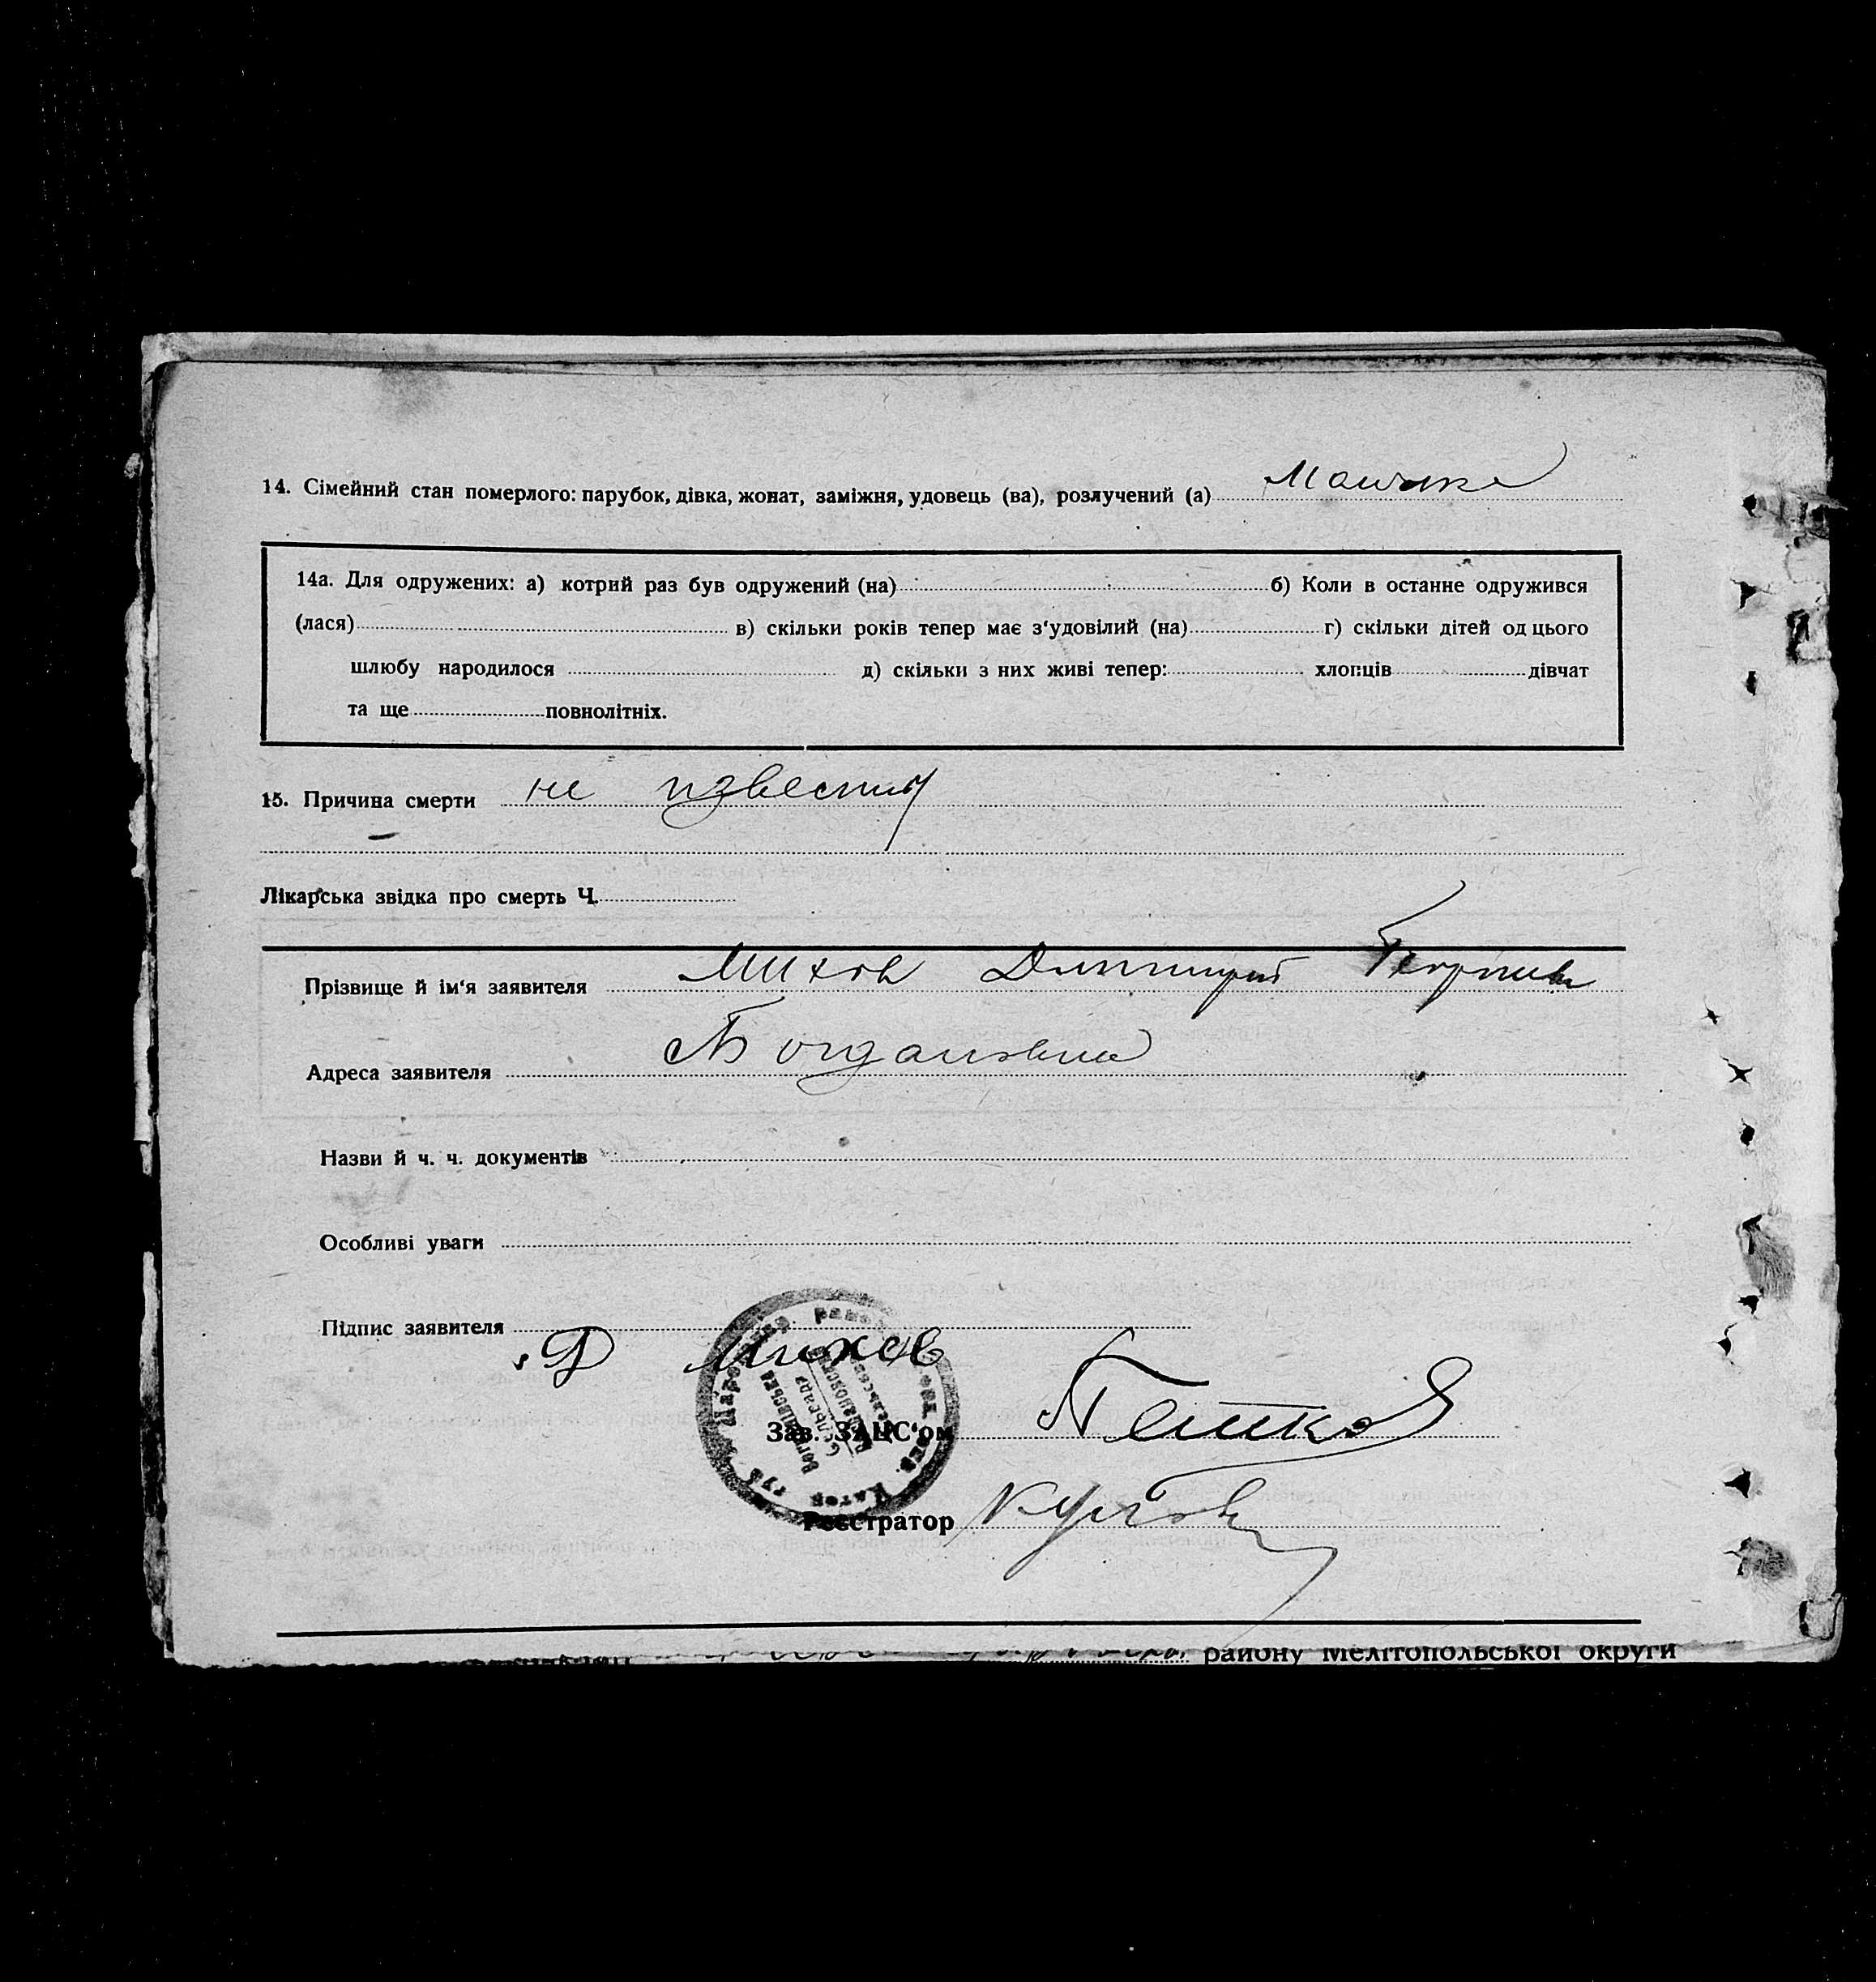 14. Сімейний стан померлого: парубок, дівка, жонат, заміжня, удовець (ва), розлучений (а)
14а. Для одружених: а) котрий раз був одружений (на) б) Коли в останне одружився
(лася) в) скільки років тепер має з'удовілий (на) г) скільки дітей од цього
шлюбу народилося д) скільки з них живі тепер: хлопців дівчат
та ще повнолітніх.
15. Причина смерти не известны
Лікарська звідка про смерть Ч.
Прізвище й ім'я заявителя Михов Димитрий
Адреса заявителя Богдановка
Назви й ч. ч. документів
Особливі уваги
Підпис заявителя
Д Михов
Зав. ЗАЦС'ом Пейков
Реєстратор
району Мелітопольської округи